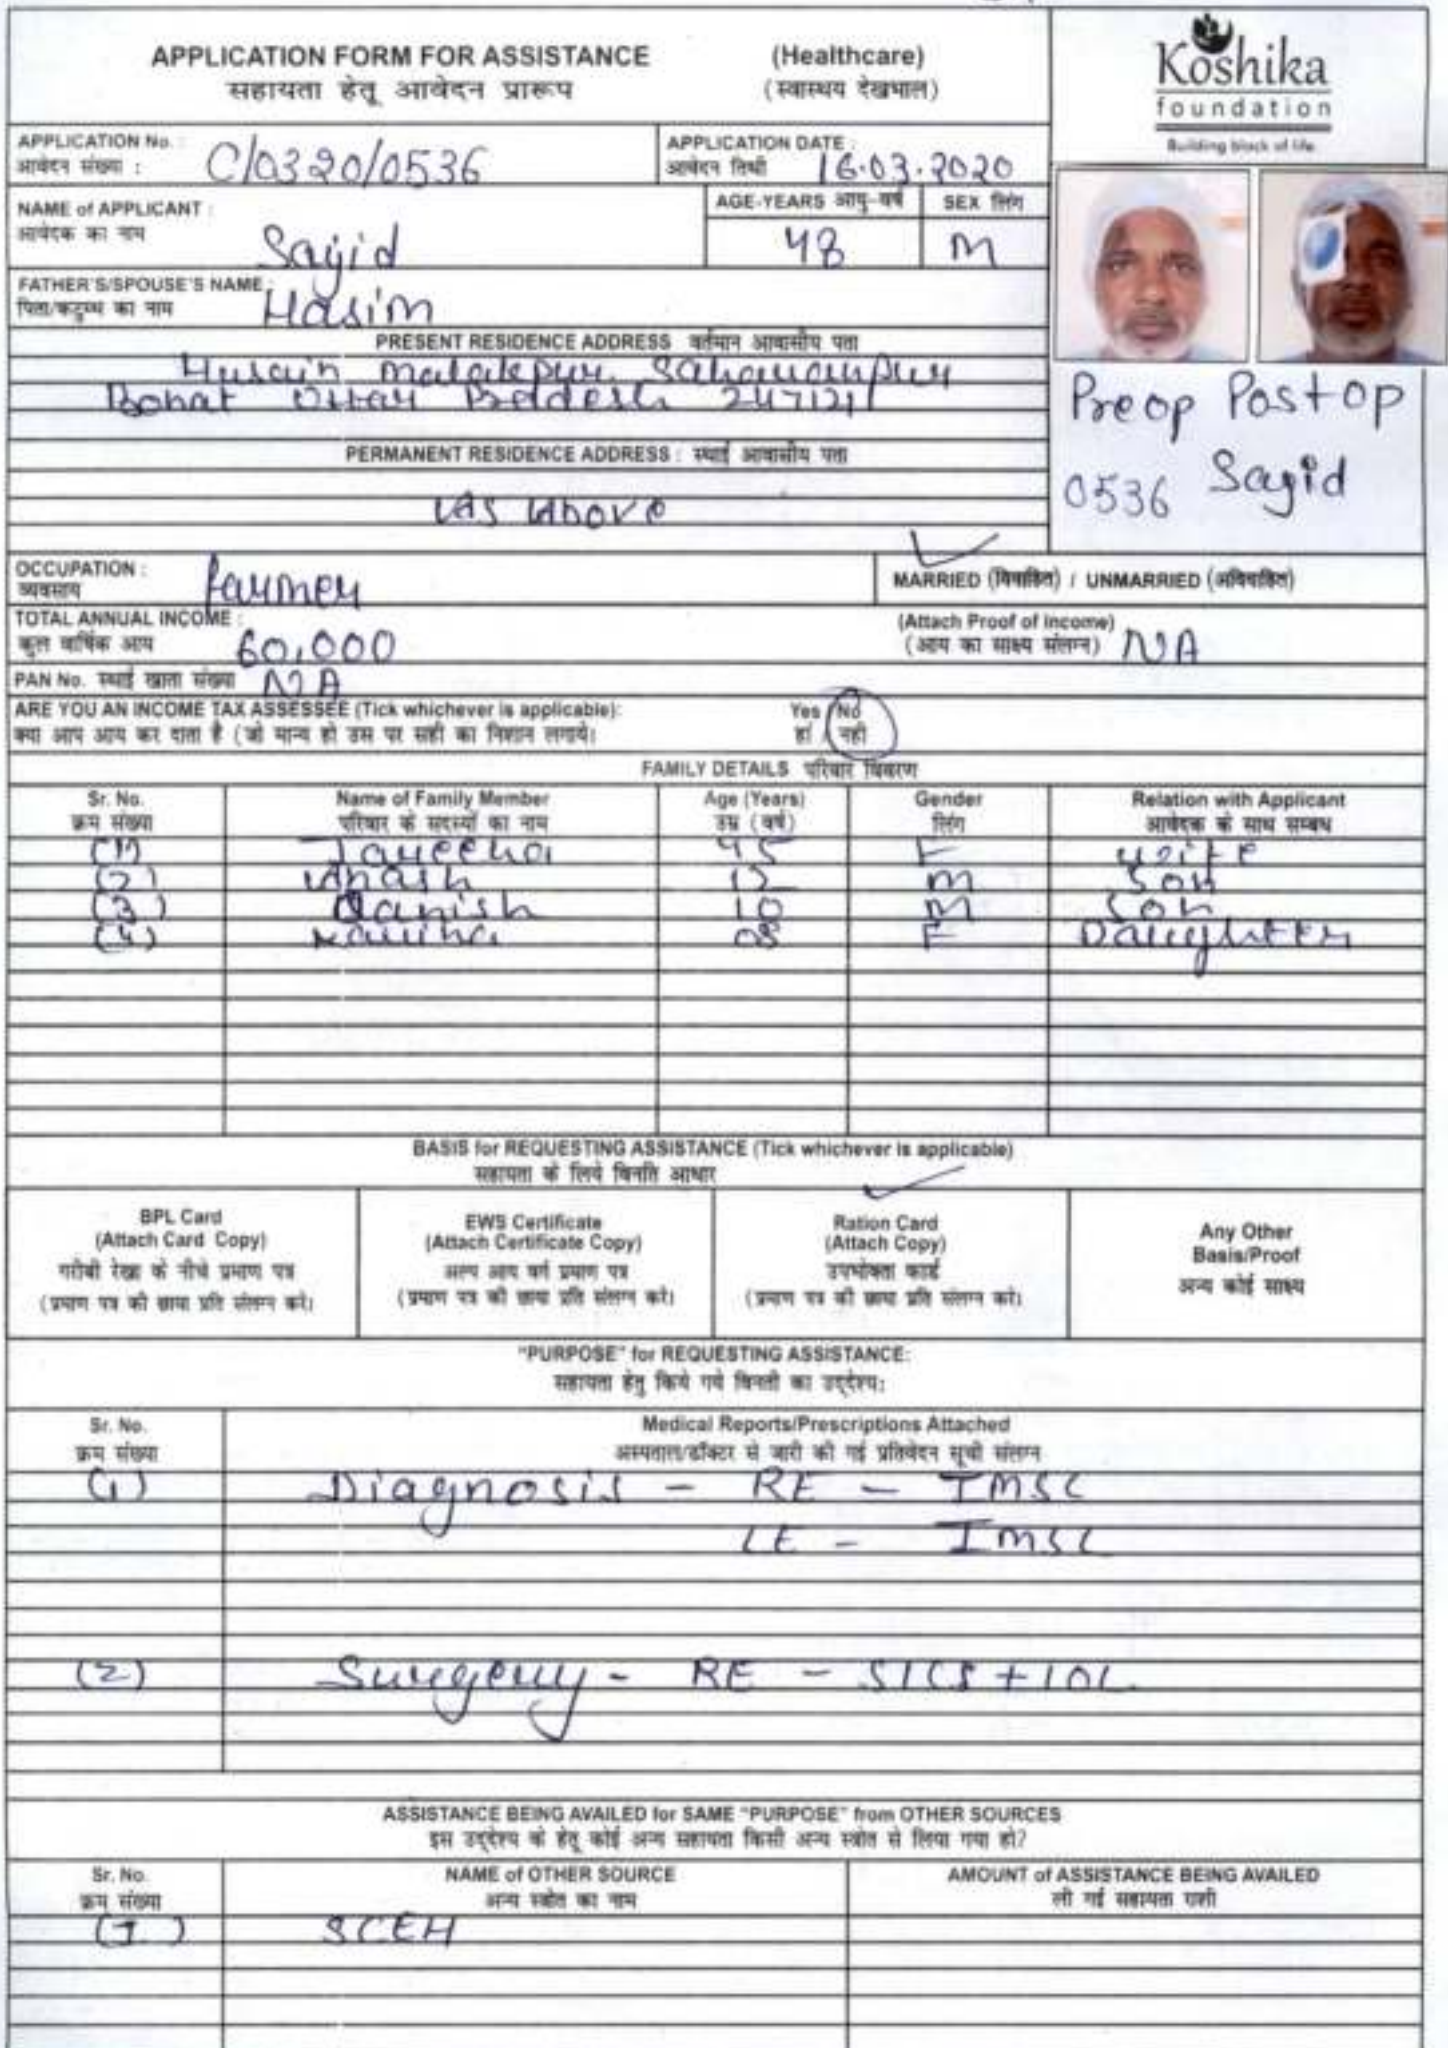 APPLICATION FORM FOR ASSISTANCE (Healthcare)
सहायता हेतू आवेदन प्रारूप (स्वास्थय देखभाल)
Koshika
foundation
Building block of life.
APPLICATION No. : C/0320/0536 APPLICATION DATE : 16.03.2020
आवेदन संख्या : आवेदन तिथी
NAME of APPLICANT : Sajid AGE-YEARS आयु-वर्ष 48 SEX लिंग M
आवेदक का नाम
FATHER'S/SPOUSE'S NAME : Hasim
पिता/कटुम्ब का नाम
PRESENT RESIDENCE ADDRESS वर्तमान आवासीय पता
Husain Malakpur Saharanpur
Uttar 247121
Preop Postop
0536 Sajid
PERMANENT RESIDENCE ADDRESS : स्थाई आवासीय पता
As Above
OCCUPATION : farmer MARRIED (विवाहित) / UNMARRIED (अविवाहित)
व्यवसाय
TOTAL ANNUAL INCOME : 60,000 (Attach Proof of Income) NA
कुल वार्षिक आय (आय का साक्ष्य संलग्न)
PAN No. स्थाई खाता संख्या NA
ARE YOU AN INCOME TAX ASSESSEE (Tick whichever is applicable): Yes / No
क्या आप आय कर दाता है (जो मान्य हो उस पर सही का निशान लगाये। हां / नही
FAMILY DETAILS परिवार विवरण
Sr. No. Name of Family Member Age (Years) Gender Relation with Applicant
क्रम संख्या परिवार के सदस्यों का नाम उम्र (वर्ष) लिंग आवेदक के साथ सम्बध
(1) 45 F wife
(2) Anash 12 M Son
(3) Danish 10 M Son
(4) 08 F Daughter
BASIS for REQUESTING ASSISTANCE (Tick whichever is applicable)
सहायता के लिये विनति आधार
BPL Card
(Attach Card Copy)
गरीबी रेखा के नीचे प्रमाण पत्र
(प्रमाण पत्र की छाया प्रति संलग्न करे।
EWS Certificate
(Attach Certificate Copy)
अल्प आय वर्ग प्रमाण पत्र
(प्रमाण पत्र की छाया प्रति संलग्न करे।
Ration Card
(Attach Copy)
उपभोक्ता कार्ड
(प्रमाण पत्र की छाया प्रति संलग्न करे।
Any Other
Basis/Proof
अन्य कोई साक्ष्य
"PURPOSE" for REQUESTING ASSISTANCE:
सहायता हेतु किये गये विनती का उद्देश्य:
Sr. No. Medical Reports/Prescriptions Attached
क्रम संख्या अस्पताल/डॉक्टर से जारी की गई प्रतिवेदन सूची संलग्न
(1) Diagnosis - RE - IMSC
LE - IMSC
(2) Surgery - RE - SICS + IOL
ASSISTANCE BEING AVAILED for SAME "PURPOSE" from OTHER SOURCES
इस उद्देश्य के हेतू कोई अन्य सहायता किसी अन्य स्त्रोत से लिया गया हो?
Sr. No. NAME of OTHER SOURCE AMOUNT of ASSISTANCE BEING AVAILED
क्रम संख्या अन्य स्त्रोत का नाम ली गई सहायता राशी
(1) SCEH